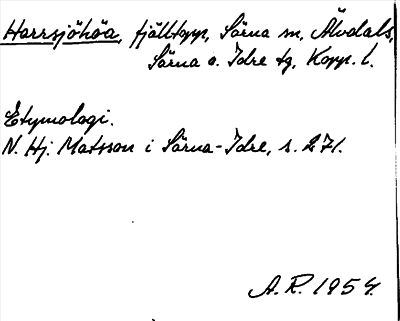 Harrsjöhöa, fjälltopp, Särna sn, Älvdals,
Särna o. Idre tg, Kopp. l.
Etymologi.
N. Hj. Matsson i Särna-Idre, s. 271.
A.R. 1954.